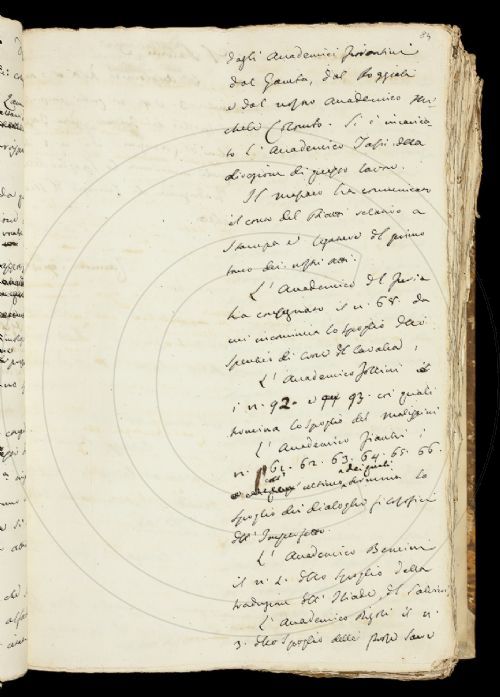 84
dagli Academici fiorentini
dal Gamba, dal Poggiali
e dal nostro Academico Mi-
chele Colombo. Si è incarica-
to l'Academico Tassi della
direzione di questo lavoro.
Il ha comunicato
il conto del Piatti relativo a
stampa e legature del primo
tomo dei nostri atti.
L'Academico del Furia
ha consegnato il n. 68. da
cui incomincia lo spoglio dello
specchio di Croce del Cavalca;
L'Academico Follini
i n. 92. e 93. coi quali
lo spoglio del Malispini
L'Academico Fiacchi i
n. 61. 62. 63. 64. 65. 66.
dei quali
lo
spoglio dei dialoghi filosofici
dell'Imperfetto.
L'Academico Bencini
il n. 2. dello spoglio della
traduzione dell'Iliade del Salvini
L'Academico Rigoli il n.
3. dello spoglio delle prose